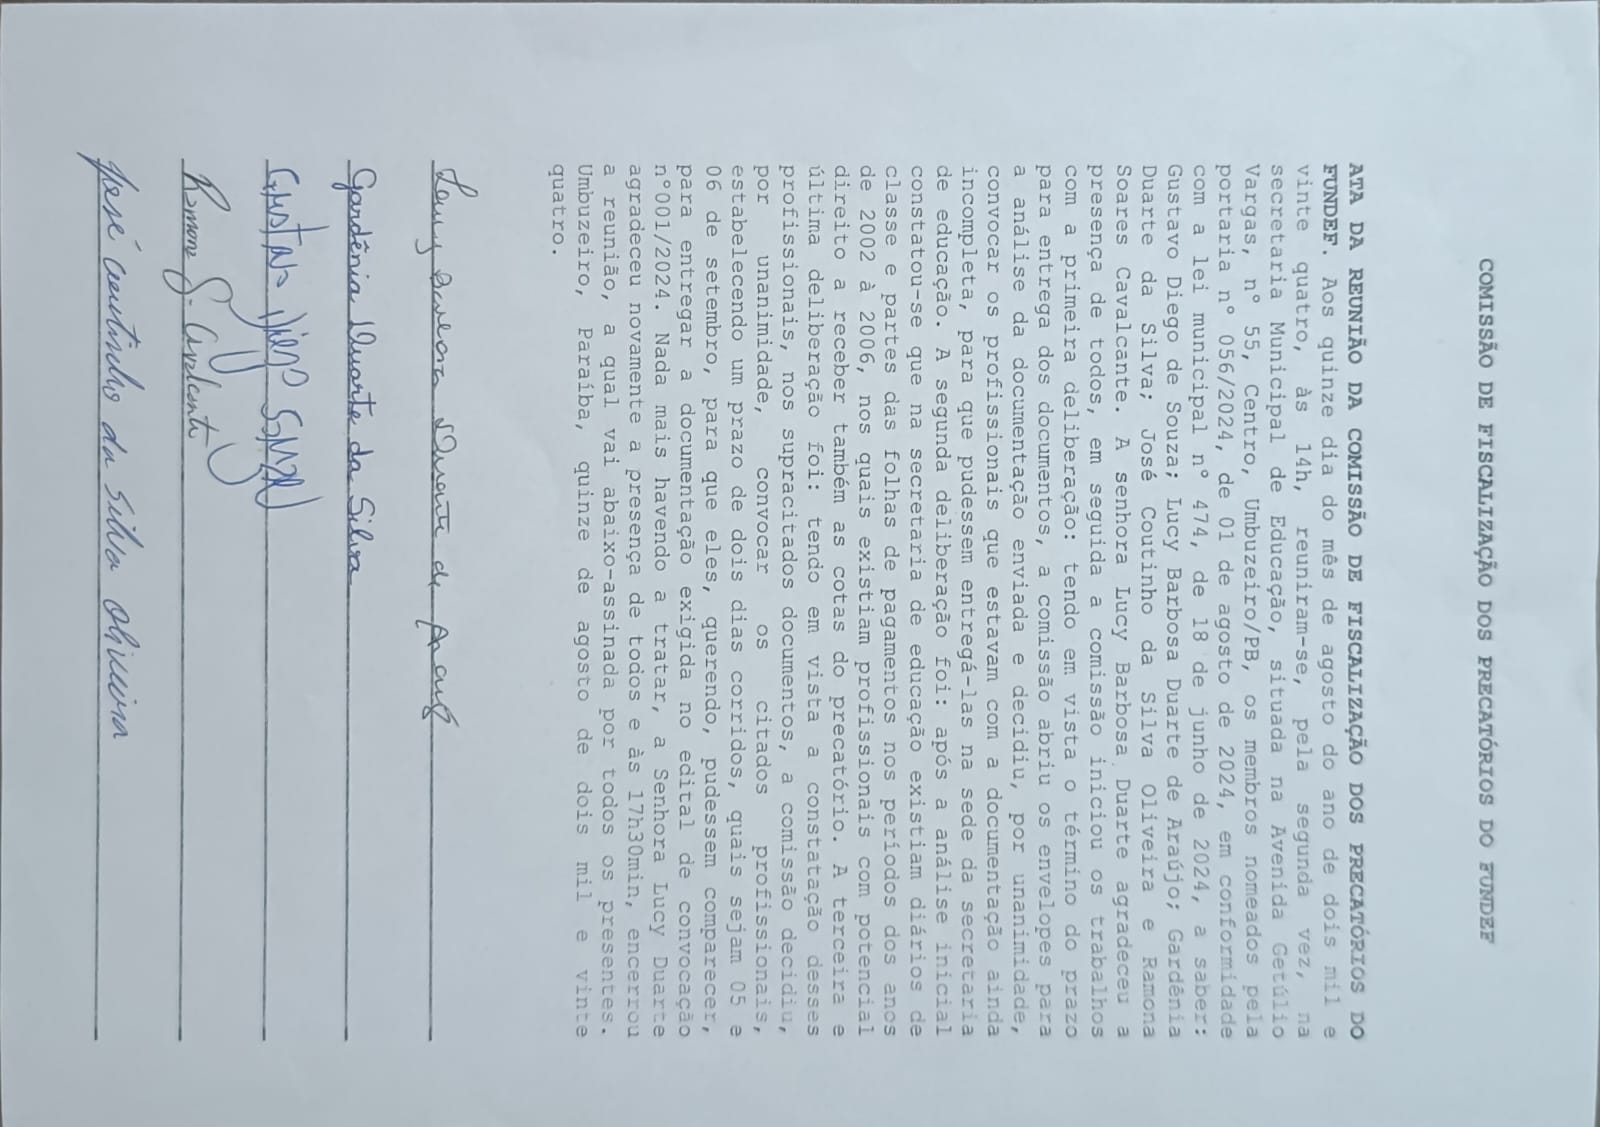 COMISSÃO DE FISCALIZAÇÃO DOS PRECATÓRIOS DO FUNDEF
ATA DA REUNIÃO DA COMISSÃO DE FISCALIZAÇÃO DOS PRECATÓRIOS DO
FUNDEF. Aos quinze dia do mês de agosto do ano de dois mil e
vinte quatro, às 14h, reuniram-se, pela segunda vez, na
secretaria Municipal de Educação, situada na Avenida Getúlio
Vargas, nº 55, Centro, Umbuzeiro/PB, os membros nomeados pela
portaria nº 056/2024, de 01 de agosto de 2024, em conformidade
com a lei municipal nº 474, de 18 de junho de 2024, a saber:
Gustavo Diego de Souza; Lucy Barbosa Duarte de Araújo; Gardênia
Duarte da Silva; José Coutinho da Silva Oliveira e Ramona
Soares Cavalcante. A senhora Lucy Barbosa Duarte agradeceu a
presença de todos, em seguida a comissão iniciou os trabalhos
com a primeira deliberação: tendo em vista o término do prazo
para entrega dos documentos, a comissão abriu os envelopes para
a análise da documentação enviada e decidiu, por unanimidade,
convocar os profissionais que estavam com a documentação ainda
incompleta, para que pudessem entregá-las na sede da secretaria
de educação. A segunda deliberação foi: após a análise inicial
constatou-se que na secretaria de educação existiam diários de
classe e partes das folhas de pagamentos nos períodos dos anos
de 2002 à 2006, nos quais existiam profissionais com potencial
direito a receber também as cotas do precatório. A terceira e
última deliberação foi: tendo em vista a constatação desses
profissionais, nos supracitados documentos, a comissão decidiu,
por unanimidade, convocar os citados profissionais,
estabelecendo um prazo de dois dias corridos, quais sejam 05 e
06 de setembro, para que eles, querendo, pudessem comparecer,
para entregar a documentação exigida no edital de convocação
nº001/2024. Nada mais havendo a tratar, a Senhora Lucy Duarte
agradeceu novamente a presença de todos e às 17h30min, encerrou
a reunião, a qual vai abaixo-assinada por todos os presentes.
Umbuzeiro, Paraíba, quinze de agosto de dois mil e vinte
quatro.
Lucy Barbosa Duarte de Araujo
Gardênia Duarte da Silva
Gustavo Diego Souza
Ramona S. Cavalcante
José Coutinho da Silva Oliveira